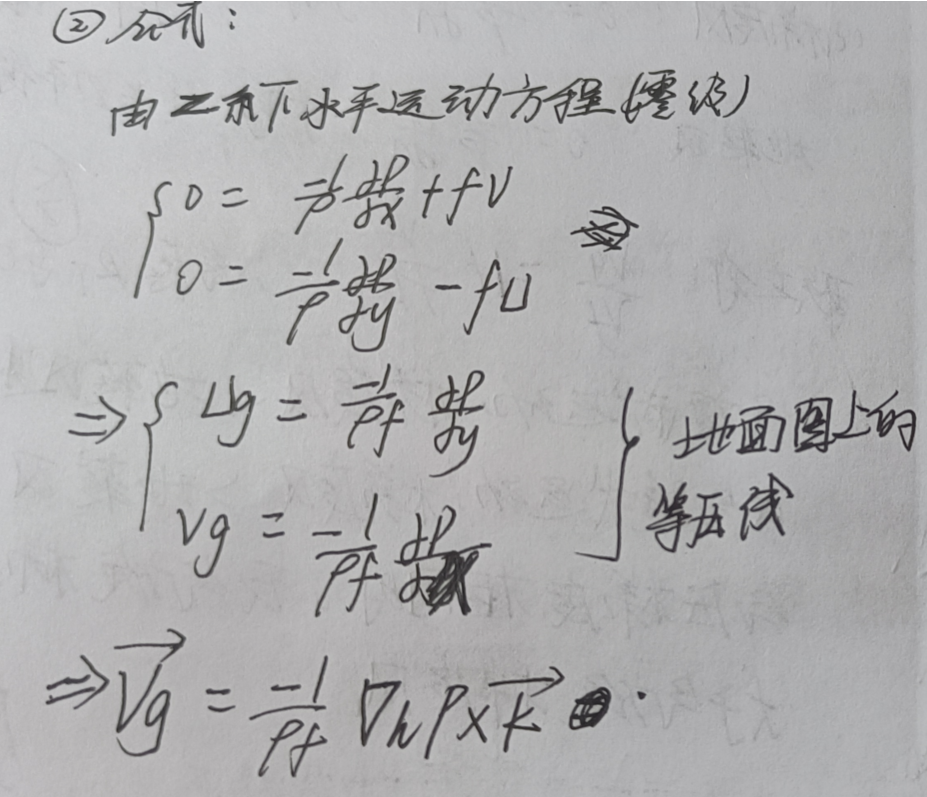 ② 公式：
由 Z 系下水平运动方程（零级）
0 = -1/ρ ∂P/∂x + fV
0 = -1/ρ ∂P/∂y - fU
⇒ Ug = -1/ρf ∂P/∂y
Vg = -1/ρf ∂P/∂x
地面图上的
等压线
⇒ Vg = -1/ρf ∇hP×k